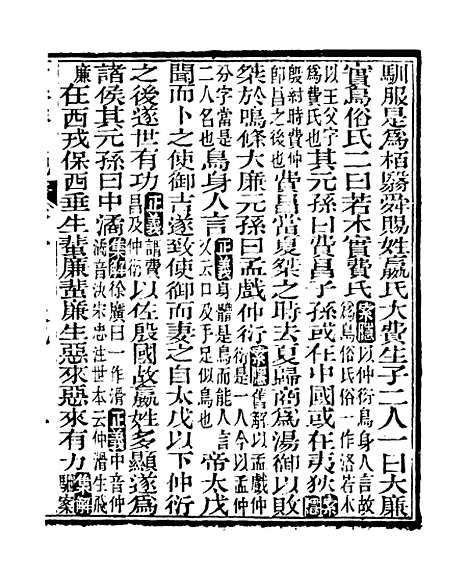 馴服是爲栢翳舜賜姓嬴氏大費生子二人一曰大廉
實鳥俗氏二曰若木實費氏索隱以仲衍鳥身人言故爲鳥俗氏俗一作浴若木
以王父字爲費氏也其元孫曰費昌子孫或在中國或在夷狄索隱
殷紂時費仲即昌之後也費昌當夏桀之時去夏歸商爲湯御以敗
桀於鳴條大廉元孫曰孟戲仲衍索隱舊解以孟戲仲衍是一人今以孟仲
分字當是二人名也鳥身人言正義身體是鳥而能人言又云口及手足似鳥也帝太戊
聞而卜之使御吉遂致使御而妻之自太戊以下仲衍
之後遂世有功正義謂費昌及仲衍以佐殷國故嬴姓多顯遂爲
諸侯其元孫曰中潏集解徐廣曰一作滑正義中音仲潏音決宋忠注世本云仲滑生飛
廉在西戎保西垂生蜚廉蜚廉生惡來惡來有力集解駰案